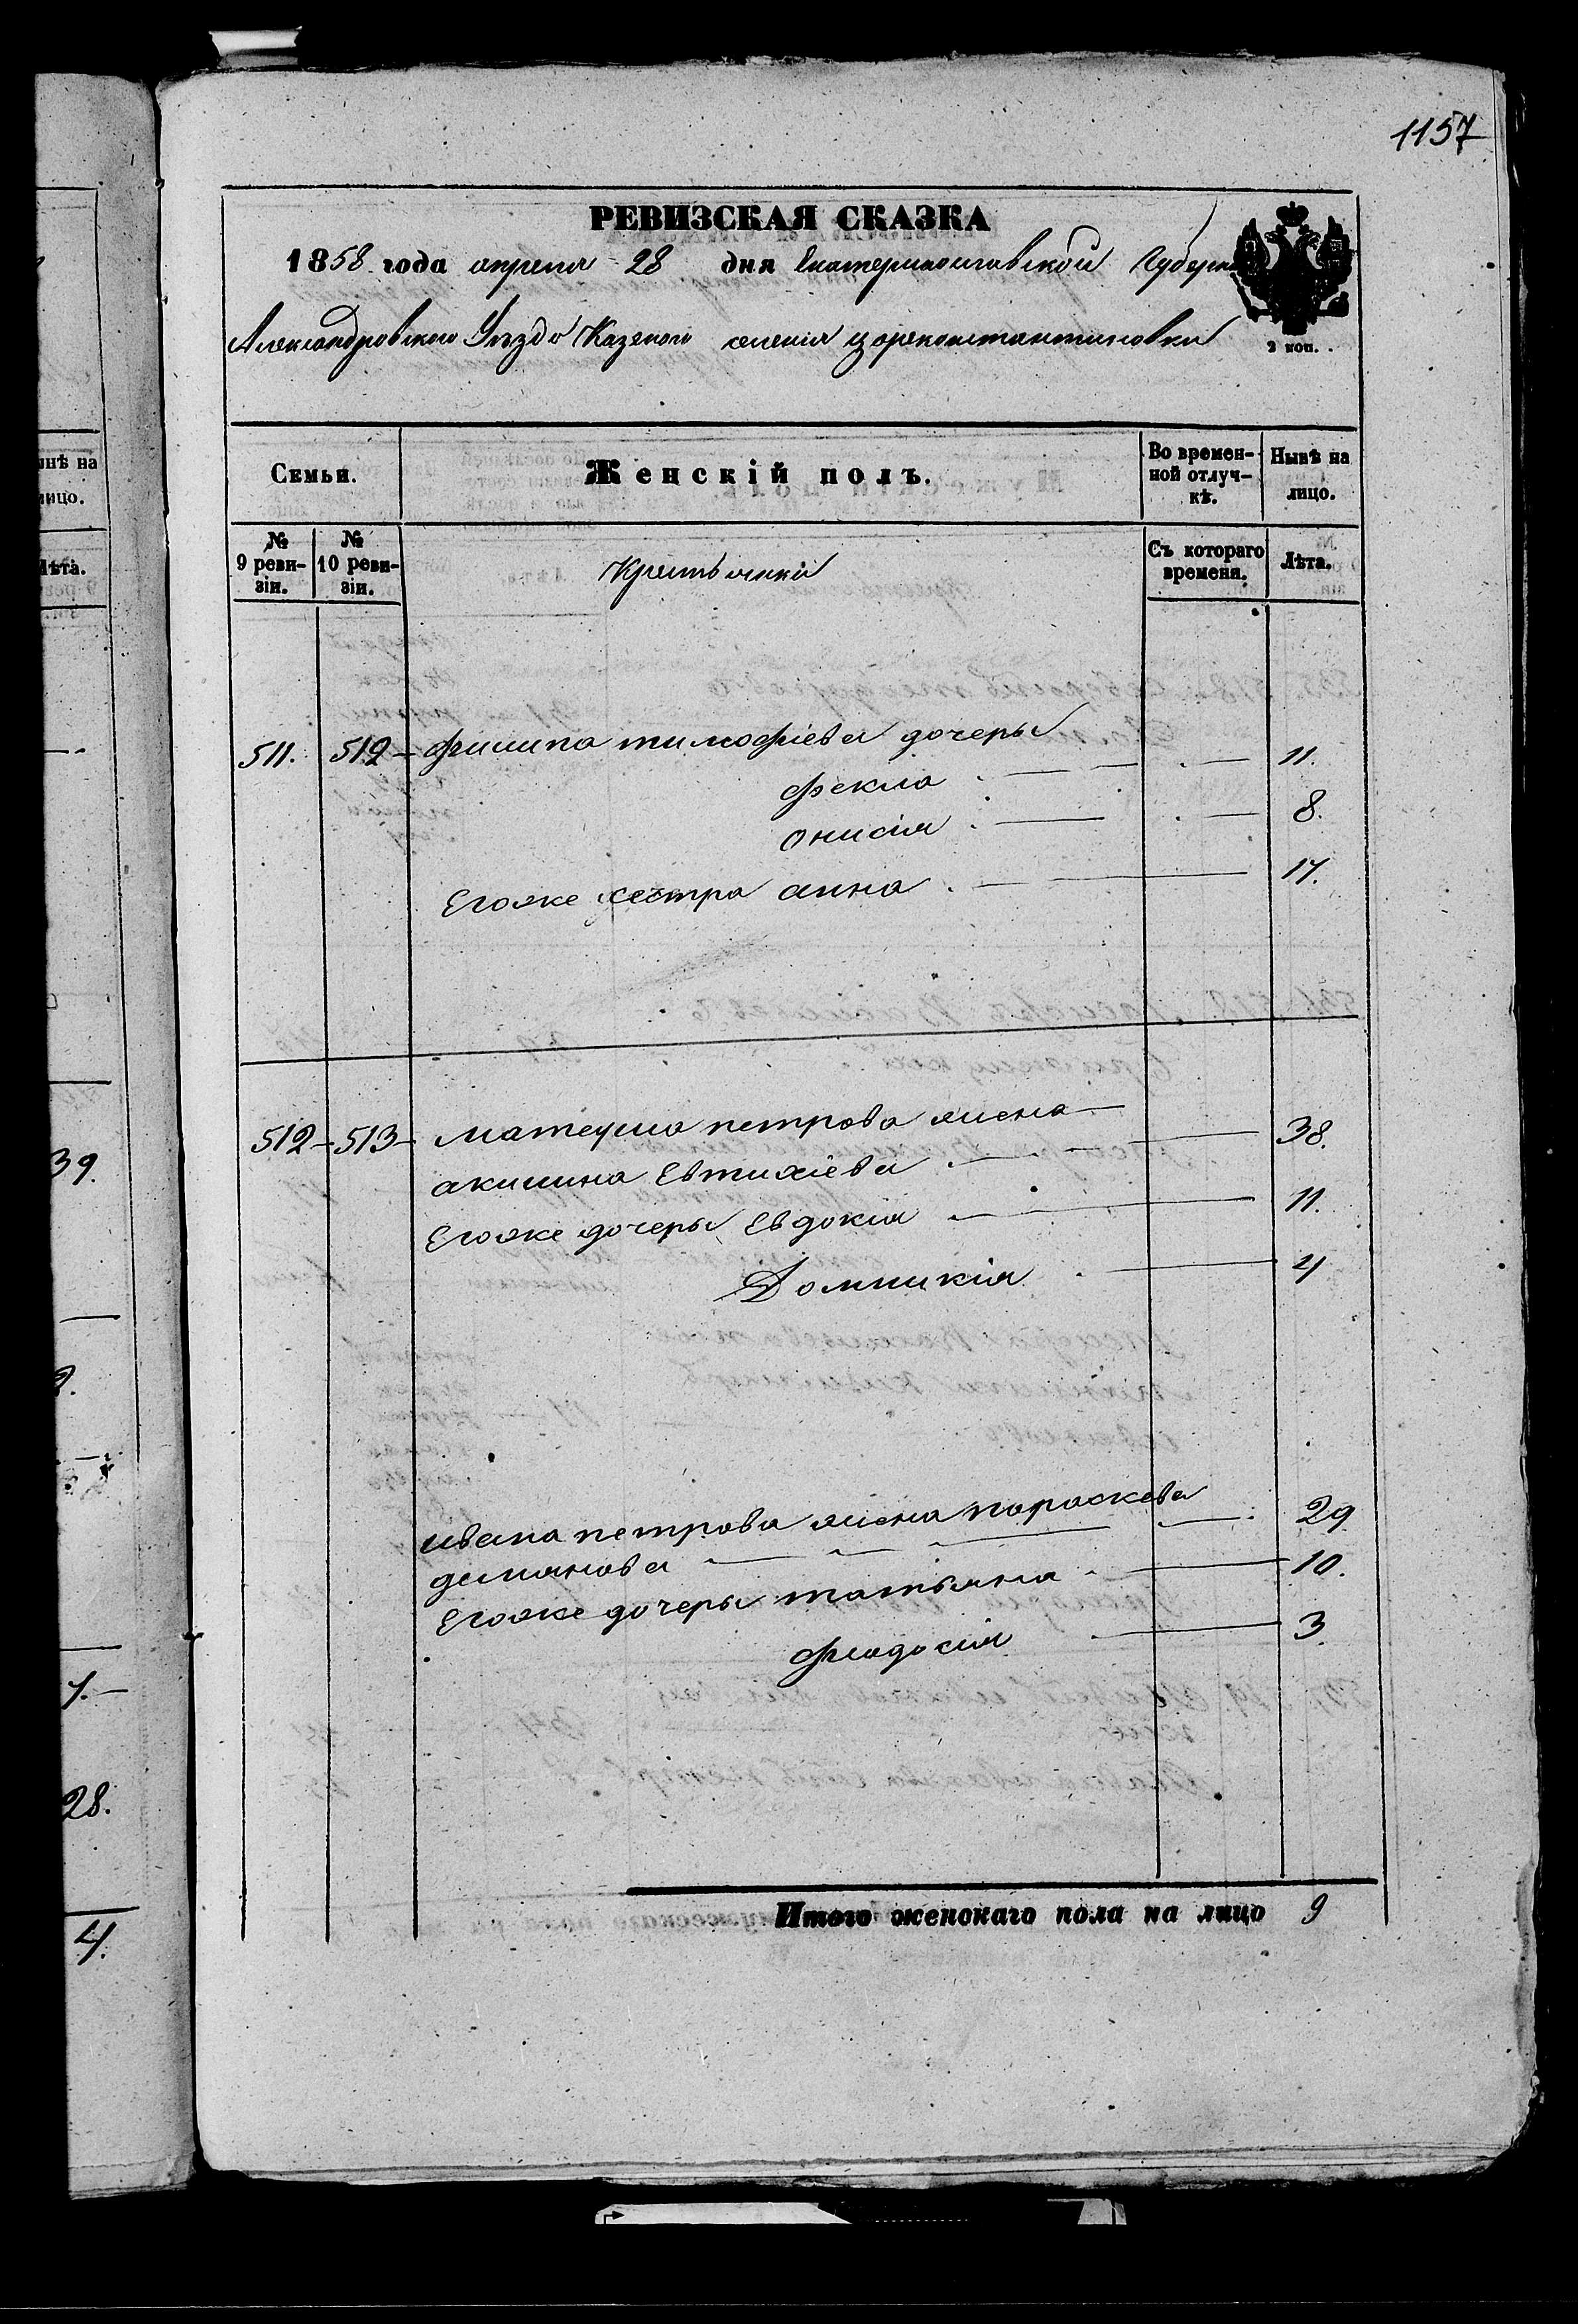 1157
РЕВИЗСКАЯ СКАЗКА
1858 года апреля 28 дня Екатеринославской Губерн
Александровского Уезда Казеного селения цареконстантиновки
2 коп.
Семьи.
Женскій полъ.
Во времен-
ной отлуч-
кѣ.
Нынѣ на
лицо.
№
9 реви-
зіи.
№
10 реви-
зіи.
Крестьянки
Съ котораго
времени.
Лѣта.
511. 512 филипа тимофіева дочеры
фекла 11.
онисія 8.
Егоже сестра анна 17.
512 513 матеуша петрова жена
акилина Евтихіева 38.
Егоже дочеры Евдокія 11.
Домникія 4
ивана петрова жена параскева
демянова 29
Егоже дочеры татьяна 10.
феодосія 3.
Итого женскаго пола на лицо 9
нѣ на
лицо.
Лѣта.
39.
28.
4.